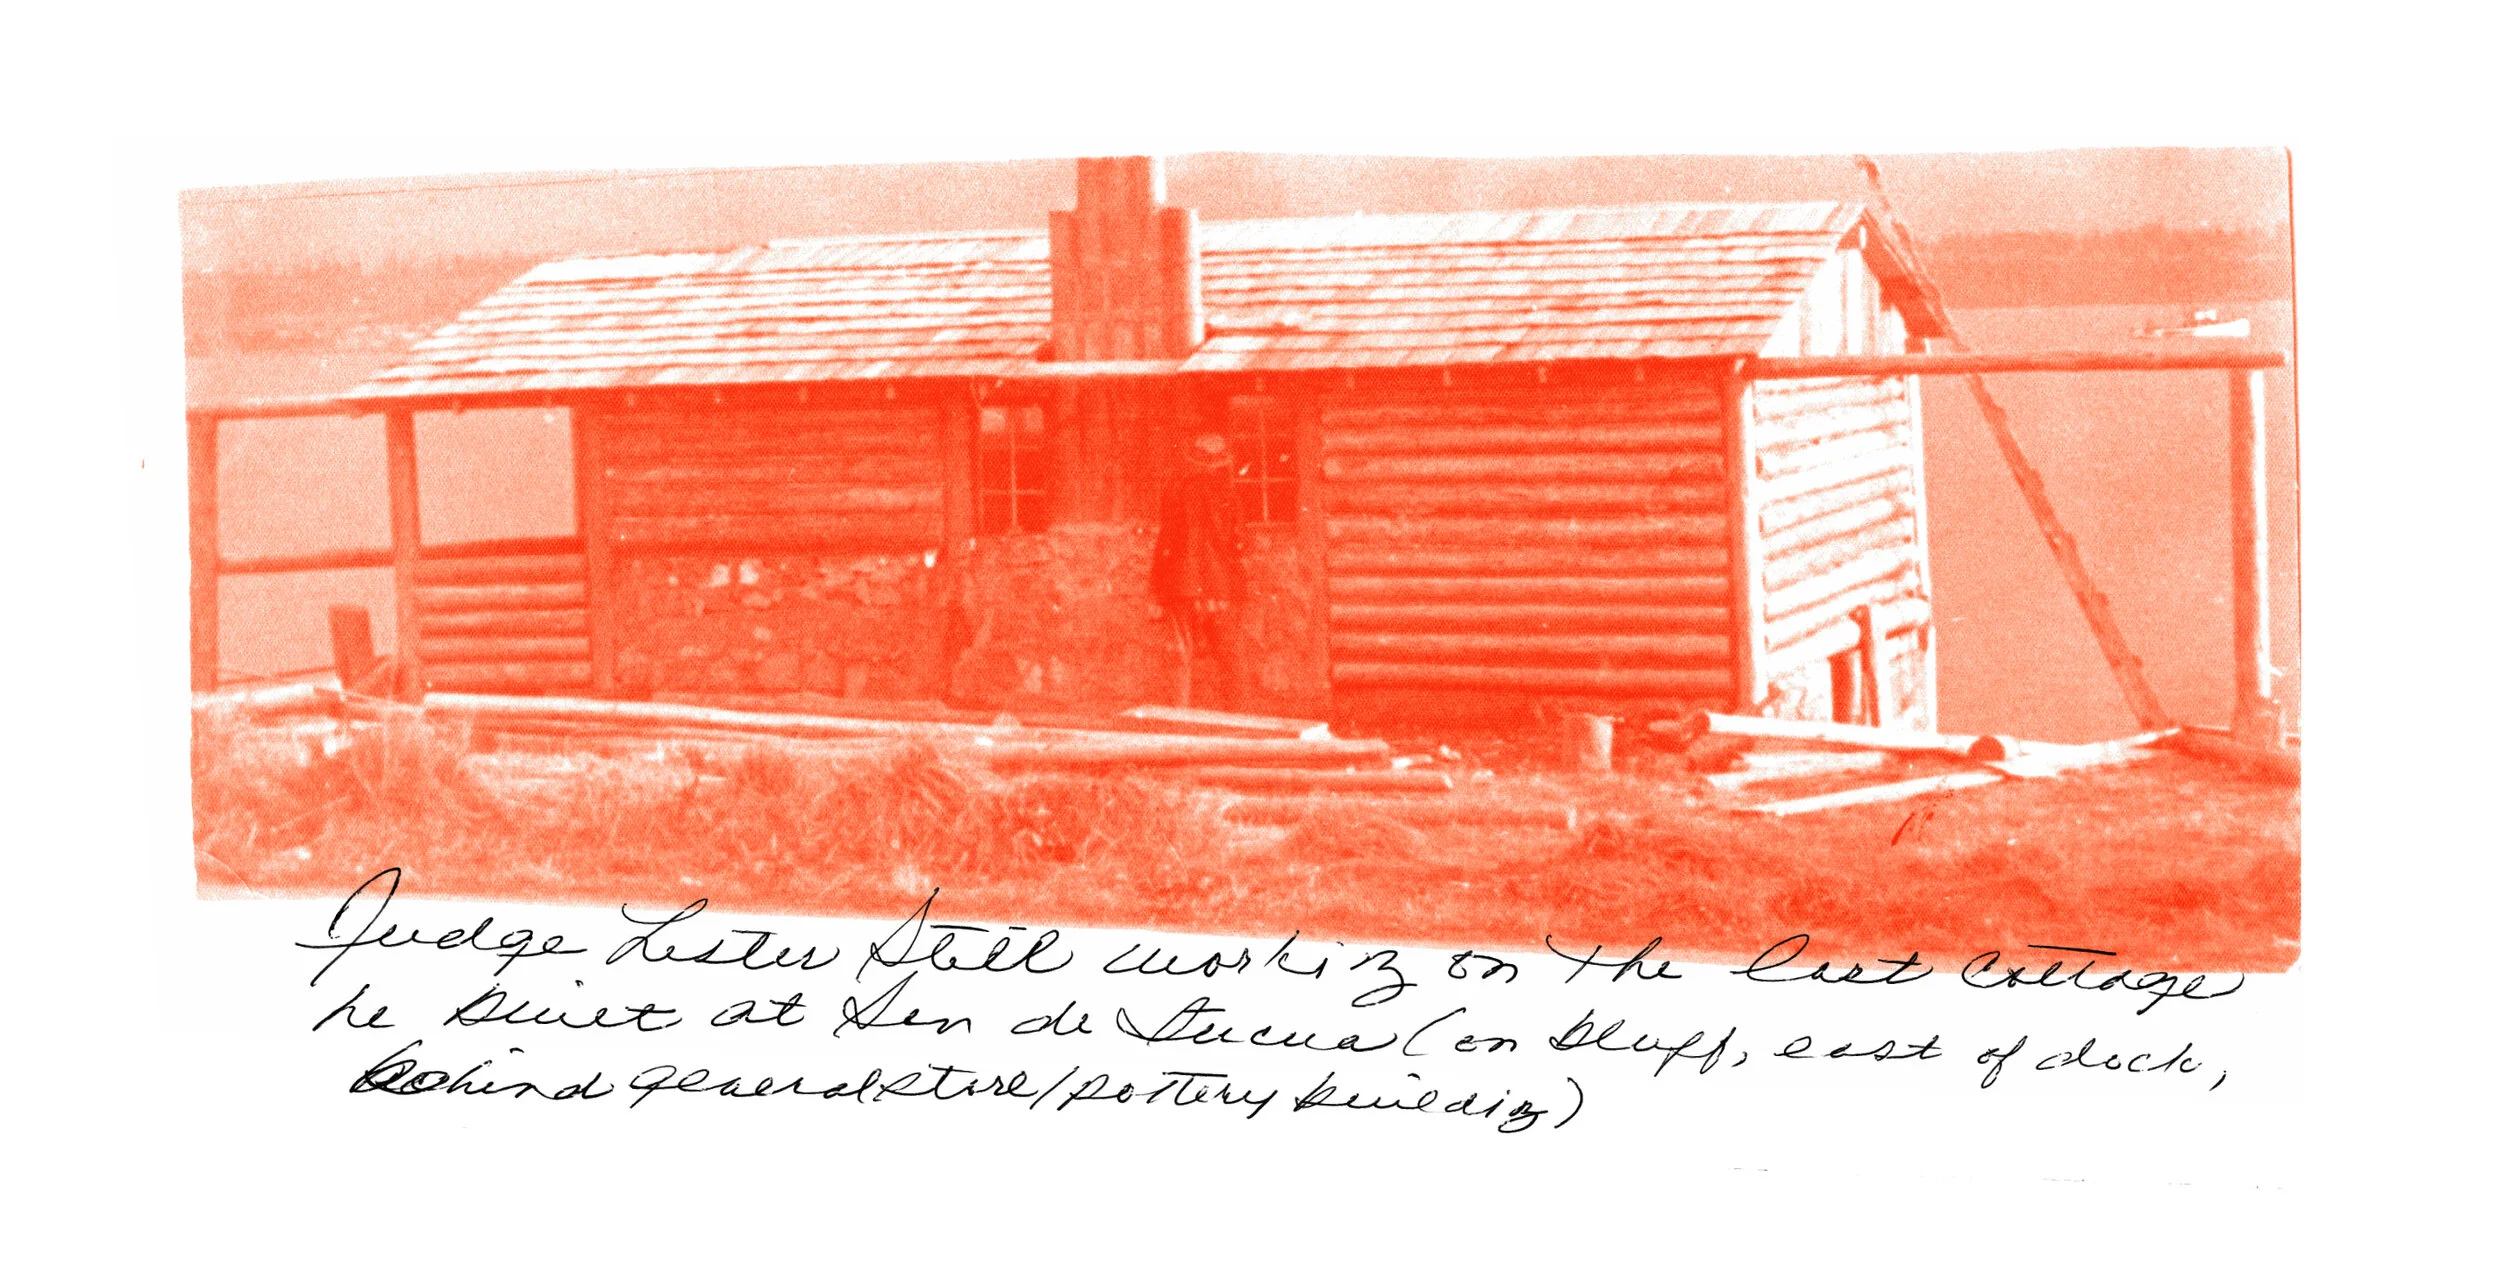 Judge Lester Still working on the last cottage
he built at San de Fuca (on bluff, east of dock,
behind general store/pottery building)